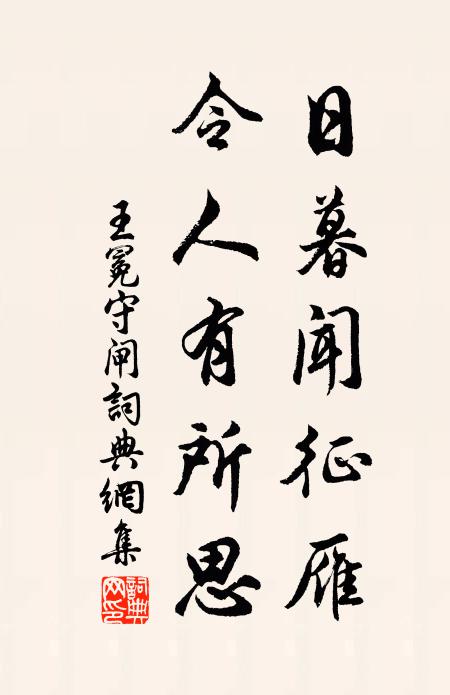 日暮聞征雁
令人有所思
王冕守閘詞典網集
詞典網印